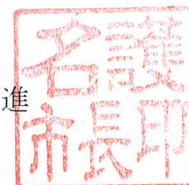 進
名護
市長印